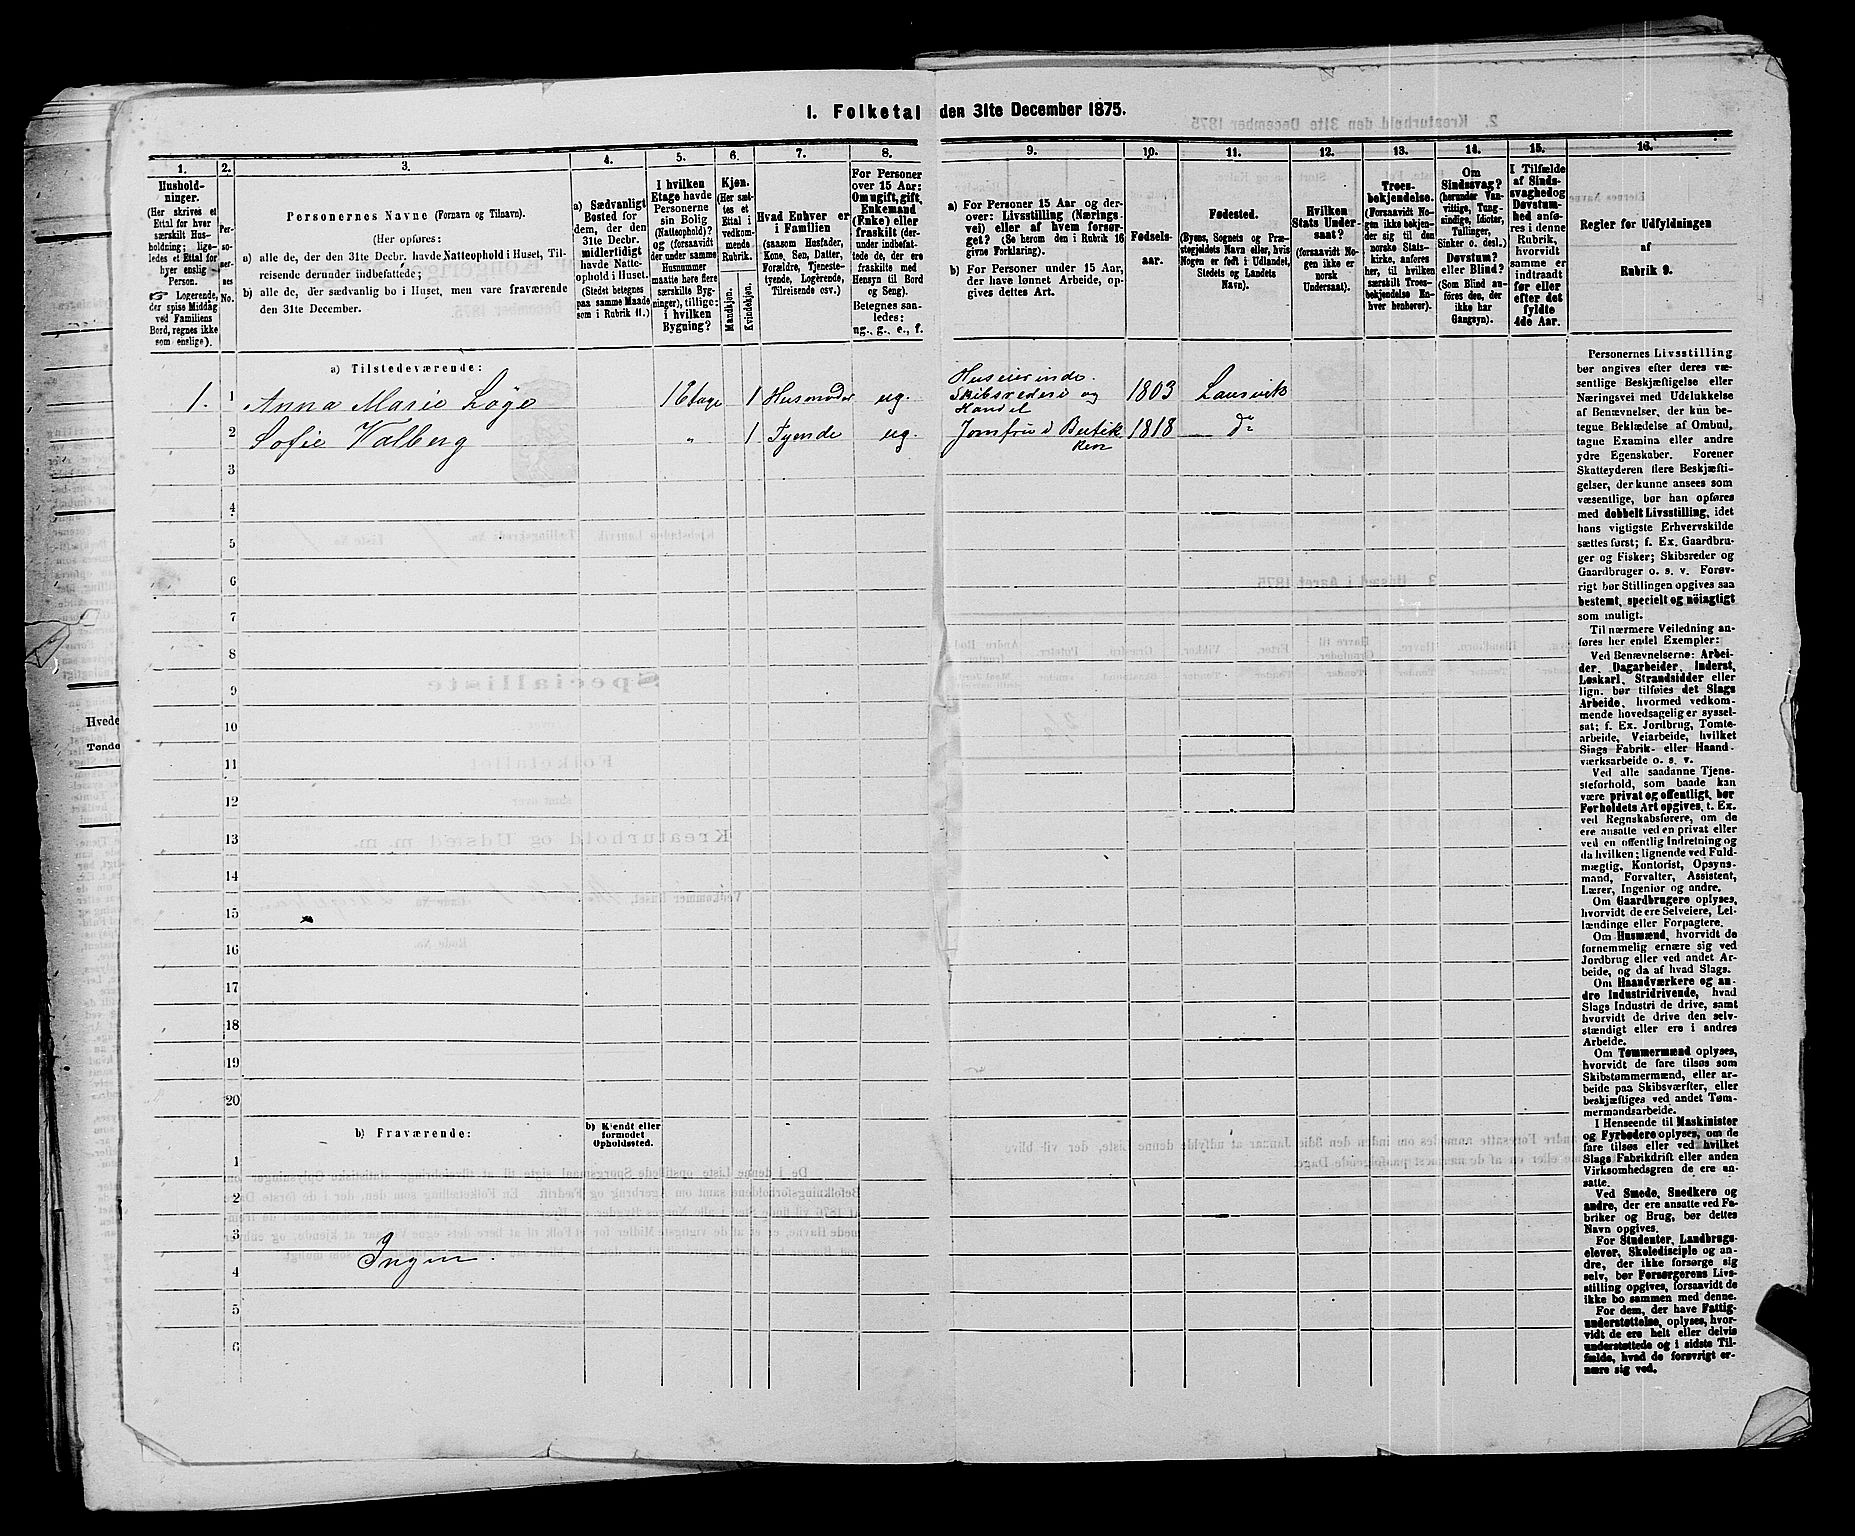 1. Folketal den 31te December 1875.
1.
Hushold-
ninger.
(Her skrives et
Ettal for hver
særskilt Hus-
holdning; lige-
ledes et Ettal for
hver enslig
Person.
Logerende,
der spise Middag
ved Familiens
Bord, regnes ikke
som enslige).
2.
Per-
so-
ner-
nes
No.
3.
Personernes Navne (Fornavn og Tilnavn).
(Her opføres:
a) alle de, der den 31te Decbr. havde Natteophold i Huset, Til-
reisende derunder indbefattede;
b) alle de, der sædvanlig bo i Huset, men vare fraværende
den 31te December.
4.
a) Sædvanligt
Bosted for
dem, der den
31te Decbr.
midlertidigt
havde Natte-
ophold i Huset.
(Stedet betegnes
paa samme Maade
som i Rubrik 11.)
5.
I hvilken
Etage havde
Personerne
sin Bolig
(Natteophold)?
og (forsaavidt
der under samme
Husnummer
maatte høre flere
særskilte Byg-
ninger), tillige:
i hvilken
Bygning?
6.
Kjøn.
(Her sæt-
tes et
Ettal i
vedkom-
mende
Rubrik.
Mandkjøn.
Kvindekjøn.
7.
Hvad Enhver er
i Familien
(saasom Husfader,
Kone, Søn, Datter,
Forældre, Tjeneste-
tyende, Logerende,
Tilreisende osv.)
8.
For Personer
over 15 Aar:
Om ugift, gift,
Enkemand
(Enke) eller
fraskilt (der-
under indbefat-
tede de, der ere
fraskilte med
Hensyn til Bord
og Seng).
Betegnes saa-
ledes:
ug., g., e., f.
9.
a) For Personer 15 Aar og der-
over: Livsstilling (Nærings-
vei) eller af hvem forsør-
get? (Se herom den i Rubrik 16
givne Forklaring).
b) For Personer under 15 Aar,
der have lønnet Arbeide, op-
gives dettes Art.
10.
Fødsels-
aar.
11.
Fødested.
(Byens, Sognets og Præ-
stegjeldets Navn eller, hvis
Nogen er født i Udlandet,
Stedets og Landets
Navn).
12.
Hvilken
Stats Under-
saat?
(forsaavidt No-
gen ikke er
norsk
Undersaat).
13.
Troes-
bekjendelse.
(Forsaavidt No-
gen ikke bekjen-
der sig til den
norske Stats-
kirke, anføres
her, til hvilken
særskilt Troes-
bekjendelse En-
hver henhører).
14.
Om
Sindssvag?
(herunder Van-
vittige, Tung-
sindige, Idioter,
Tullinger,
Sinker o. desl.)
Døvstum?
eller Blind?
(Som Blind an-
føres den, der
ikke har
Gangsyn).
15.
I Tilfælde
af Sinds-
svaghed og
Døvstum-
hed anfø-
res i denne
Rubrik,
hvorvidt
samme er
indtraadt
før eller
efter det
fyldte
4de Aar.
16.
Regler for Udfyldningen
af
Rubrik 9.
a) Tilstedeværende:
1. 1 Anna Marie Løge 1 Etage 1 Husmoder ug. Huseierinde. Skibsrederi og Handel 1803 Laurvik
2 Sofie Valberg " 1 Tyende ug. Jomfru i Butikken 1818 do
3
4
5
6
7
8
9
10
11
12
13
14
15
16
17
18
19
20
b) Fraværende:
b) Kjendt eller
formodet
Opholdsted.
1
2
3
4 Ingen.
5
6
Personernes Livsstilling
bør angives efter deres væ-
sentlige Beskjæftigelse eller
Næringsvei med Udelukkelse
af Benævnelser, der kun be-
tegne Beklædelse af Ombud,
tagne Examina eller andre
ydre Egenskaber. Forener
Skatteyderen flere Beskjæfti-
gelser, der kunne ansees som
væsentlige, bør han opføres
med dobbelt Livsstilling, idet
hans vigtigste Erhvervskilde
sættes først; f. Ex. Gaardbru-
ger og Fisker; Skibsreder og
Gaardbruger o. s. v. Forøv-
rigt bør Stillingen opgives saa
bestemt, specielt og nøiagtigt
som muligt.
Til nærmere Veiledning an-
føres her endel Exempler:
Ved Benævnelserne: Arbei-
der, Dagarbeider, Inderst,
Løskarl, Strandsidder eller
lign. bør tilføies det Slags
Arbeide, hvormed vedkom-
mende hovedsagelig er syssel-
sat; f. Ex. Jordbrug, Tomte-
arbeide, Veiarbeide, hvilket
Slags Fabrik- eller Haand-
værksarbeide o. s. v.
Ved alle saadanne Tjene-
steforhold, som baade kan
være privat og offentligt, bør
Forholdets Art opgives, t. Ex.
ved Regnskabsførere, om de
ere ansatte ved en privat eller
ved en offentlig Indretning og
da hvilken; lignende ved Fuld-
mægtig, Kontorist, Opsyns-
mand, Forvalter, Assistent,
Lærer, Ingeniør og andre.
Om Gaardbrugere oplyses,
hvorvidt de ere Selveiere, Lei-
lændinge eller Forpagtere.
Om Husmænd, hvorvidt de
fornemmelig ernære sig ved
Jordbrug eller ved andet Ar-
beide, og da af hvad Slags.
Om Haandværkere og an-
dre Industridrivende, hvad
Slags Industri de drive, samt
hvorvidt de drive den selv-
stændigt eller ere i andres
Arbeide.
Om Tømmermænd oplyses,
hvorvidt de fare tilsøs som
Skibstømmermænd, eller ar-
beide paa Skibsværfter, eller
beskjæftiges ved andet Tøm-
mermandsarbeide.
I Henseende til Maskinister
og Fyrbødere oplyses, om de
fare tilsøs eller ved hvilket
Slags Fabrikdrift eller anden
Virksomhedsgren de ere an-
satte.
Ved Smede, Snedkere og
andre, der ere ansatte ved Fa-
briker og Brug, bør dettes
Navn opgives.
For Studenter, Landbrugs-
elever, Skoledisciple og an-
dre, der ikke forsørge sig
selv, bør Forsørgerens Livs-
stilling opgives, forsaavidt de
ikke bo sammen med denne.
For dem, der have Fattig-
understøttelse, oplyses, hvor-
vidt de ere helt eller delvis
understøttede og i sidste Til-
fælde, hvad de forøvrigt er-
nære sig ved.
Hvede
Tønde